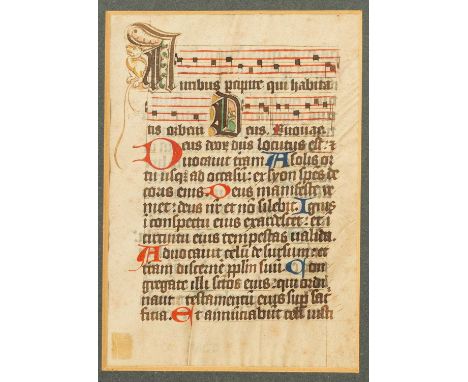 Auribus percipite qui habita
tis orbem Deus. Euouae.
Deus deorum dns locutus est: &
vocauit terram A solis or
tu usq ad occasum: ex syon spes de
coris eius Deus manifeste ve
niet: deus nr et no silebit. Ignis
i conspectu eius exardescet: et i
circuitu eius tempestas valida.
Aduocauit celu de sursum: et
terram discerne pplm suu. Con
gregate illi sctos eius: qui ordi
nant testamentu eius sup sac
ficia. Et annuciabut celi iusti